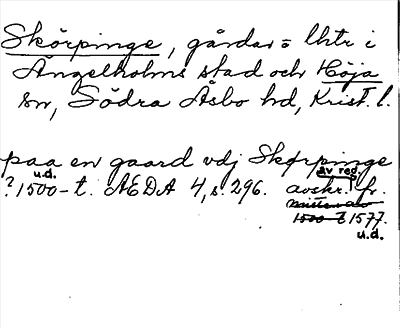 Skörpinge, gårdar = lhtr i
Ängelholms stad och Höja
sn, Södra Åsbo hd, Krist. l.
paa en gaard vdj Skørpinge
u.d. av red.
? 1500-t. AEDA 4, s. 296. avskr. fr.
mitten av
1500-t 1577.
u.d.